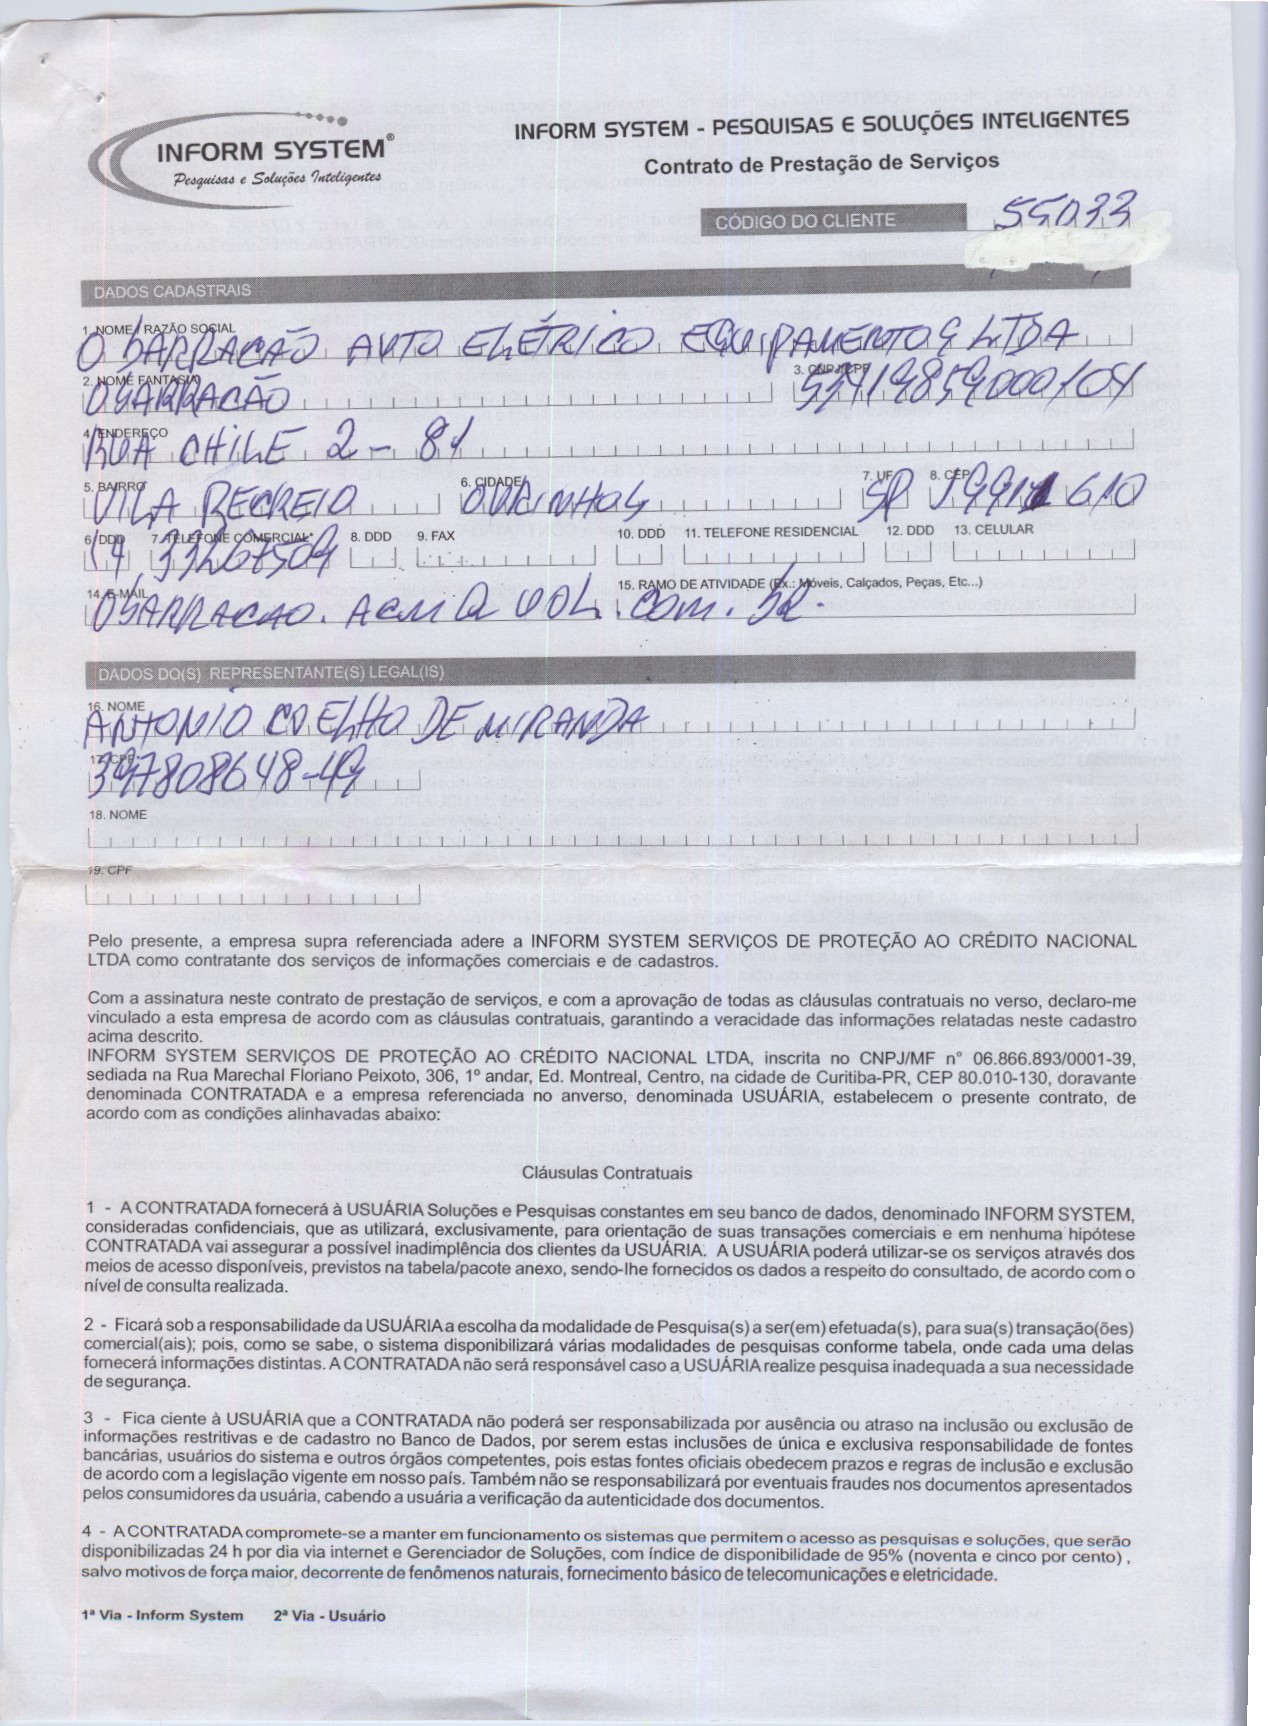 INFORM SYSTEM®
Pesquisas e Soluções Inteligentes
INFORM SYSTEM - PESQUISAS E SOLUÇÕES INTELIGENTES
Contrato de Prestação de Serviços
CÓDIGO DO CLIENTE 55033
DADOS CADASTRAIS
1. NOME / RAZÃO SOCIAL
O BARRACÃO AUTO ELÉTRICO EQUIPAMENTOS LTDA
2. NOME FANTASIA 3. CNPJ/CPF
OBARRACÃO 53419859000104
4. ENDEREÇO
RUA CHILE 2 - 81
5. BAIRRO 6. CIDADE 7. UF 8. CEP
VILA RECREIO OURINHOS SP 19911 610
6. DDD 7. TELEFONE COMERCIAL* 8. DDD 9. FAX 10. DDD 11. TELEFONE RESIDENCIAL 12. DDD 13. CELULAR
14 33267509
14. E-MAIL 15. RAMO DE ATIVIDADE (Ex.: Móveis, Calçados, Peças, Etc...)
OBARRACAO.ACM@UOL.COM.BR.
DADOS DO(S) REPRESENTANTE(S) LEGAL(IS)
16. NOME
ANTONIO COELHO DE MIRANDA
17. CPF
397808648-49
18. NOME
19. CPF
Pelo presente, a empresa supra referenciada adere a INFORM SYSTEM SERVIÇOS DE PROTEÇÃO AO CRÉDITO NACIONAL
LTDA como contratante dos serviços de informações comerciais e de cadastros.
Com a assinatura neste contrato de prestação de serviços, e com a aprovação de todas as cláusulas contratuais no verso, declaro-me
vinculado a esta empresa de acordo com as cláusulas contratuais, garantindo a veracidade das informações relatadas neste cadastro
acima descrito.
INFORM SYSTEM SERVIÇOS DE PROTEÇÃO AO CRÉDITO NACIONAL LTDA, inscrita no CNPJ/MF n° 06.866.893/0001-39,
sediada na Rua Marechal Floriano Peixoto, 306, 1º andar, Ed. Montreal, Centro, na cidade de Curitiba-PR, CEP 80.010-130, doravante
denominada CONTRATADA e a empresa referenciada no anverso, denominada USUÁRIA, estabelecem o presente contrato, de
acordo com as condições alinhavadas abaixo:
Cláusulas Contratuais
1 - A CONTRATADA fornecerá à USUÁRIA Soluções e Pesquisas constantes em seu banco de dados, denominado INFORM SYSTEM,
consideradas confidenciais, que as utilizará, exclusivamente, para orientação de suas transações comerciais e em nenhuma hipótese
CONTRATADA vai assegurar a possível inadimplência dos clientes da USUÁRIA. A USUÁRIA poderá utilizar-se os serviços através dos
meios de acesso disponíveis, previstos na tabela/pacote anexo, sendo-lhe fornecidos os dados a respeito do consultado, de acordo com o
nível de consulta realizada.
2 - Ficará sob a responsabilidade da USUÁRIA a escolha da modalidade de Pesquisa(s) a ser(em) efetuada(s), para sua(s) transação(ões)
comercial(ais); pois, como se sabe, o sistema disponibilizará várias modalidades de pesquisas conforme tabela, onde cada uma delas
fornecerá informações distintas. A CONTRATADA não será responsável caso a USUÁRIA realize pesquisa inadequada a sua necessidade
de segurança.
3 - Fica ciente à USUÁRIA que a CONTRATADA não poderá ser responsabilizada por ausência ou atraso na inclusão ou exclusão de
informações restritivas e de cadastro no Banco de Dados, por serem estas inclusões de única e exclusiva responsabilidade de fontes
bancárias, usuários do sistema e outros órgãos competentes, pois estas fontes oficiais obedecem prazos e regras de inclusão e exclusão
de acordo com a legislação vigente em nosso país. Também não se responsabilizará por eventuais fraudes nos documentos apresentados
pelos consumidores da usuária, cabendo a usuária a verificação da autenticidade dos documentos.
4 - A CONTRATADA compromete-se a manter em funcionamento os sistemas que permitem o acesso as pesquisas e soluções, que serão
disponibilizadas 24 h por dia via internet e Gerenciador de Soluções, com índice de disponibilidade de 95% (noventa e cinco por cento) ,
salvo motivos de força maior, decorrente de fenômenos naturais, fornecimento básico de telecomunicações e eletricidade.
1ª Via - Inform System 2ª Via - Usuário